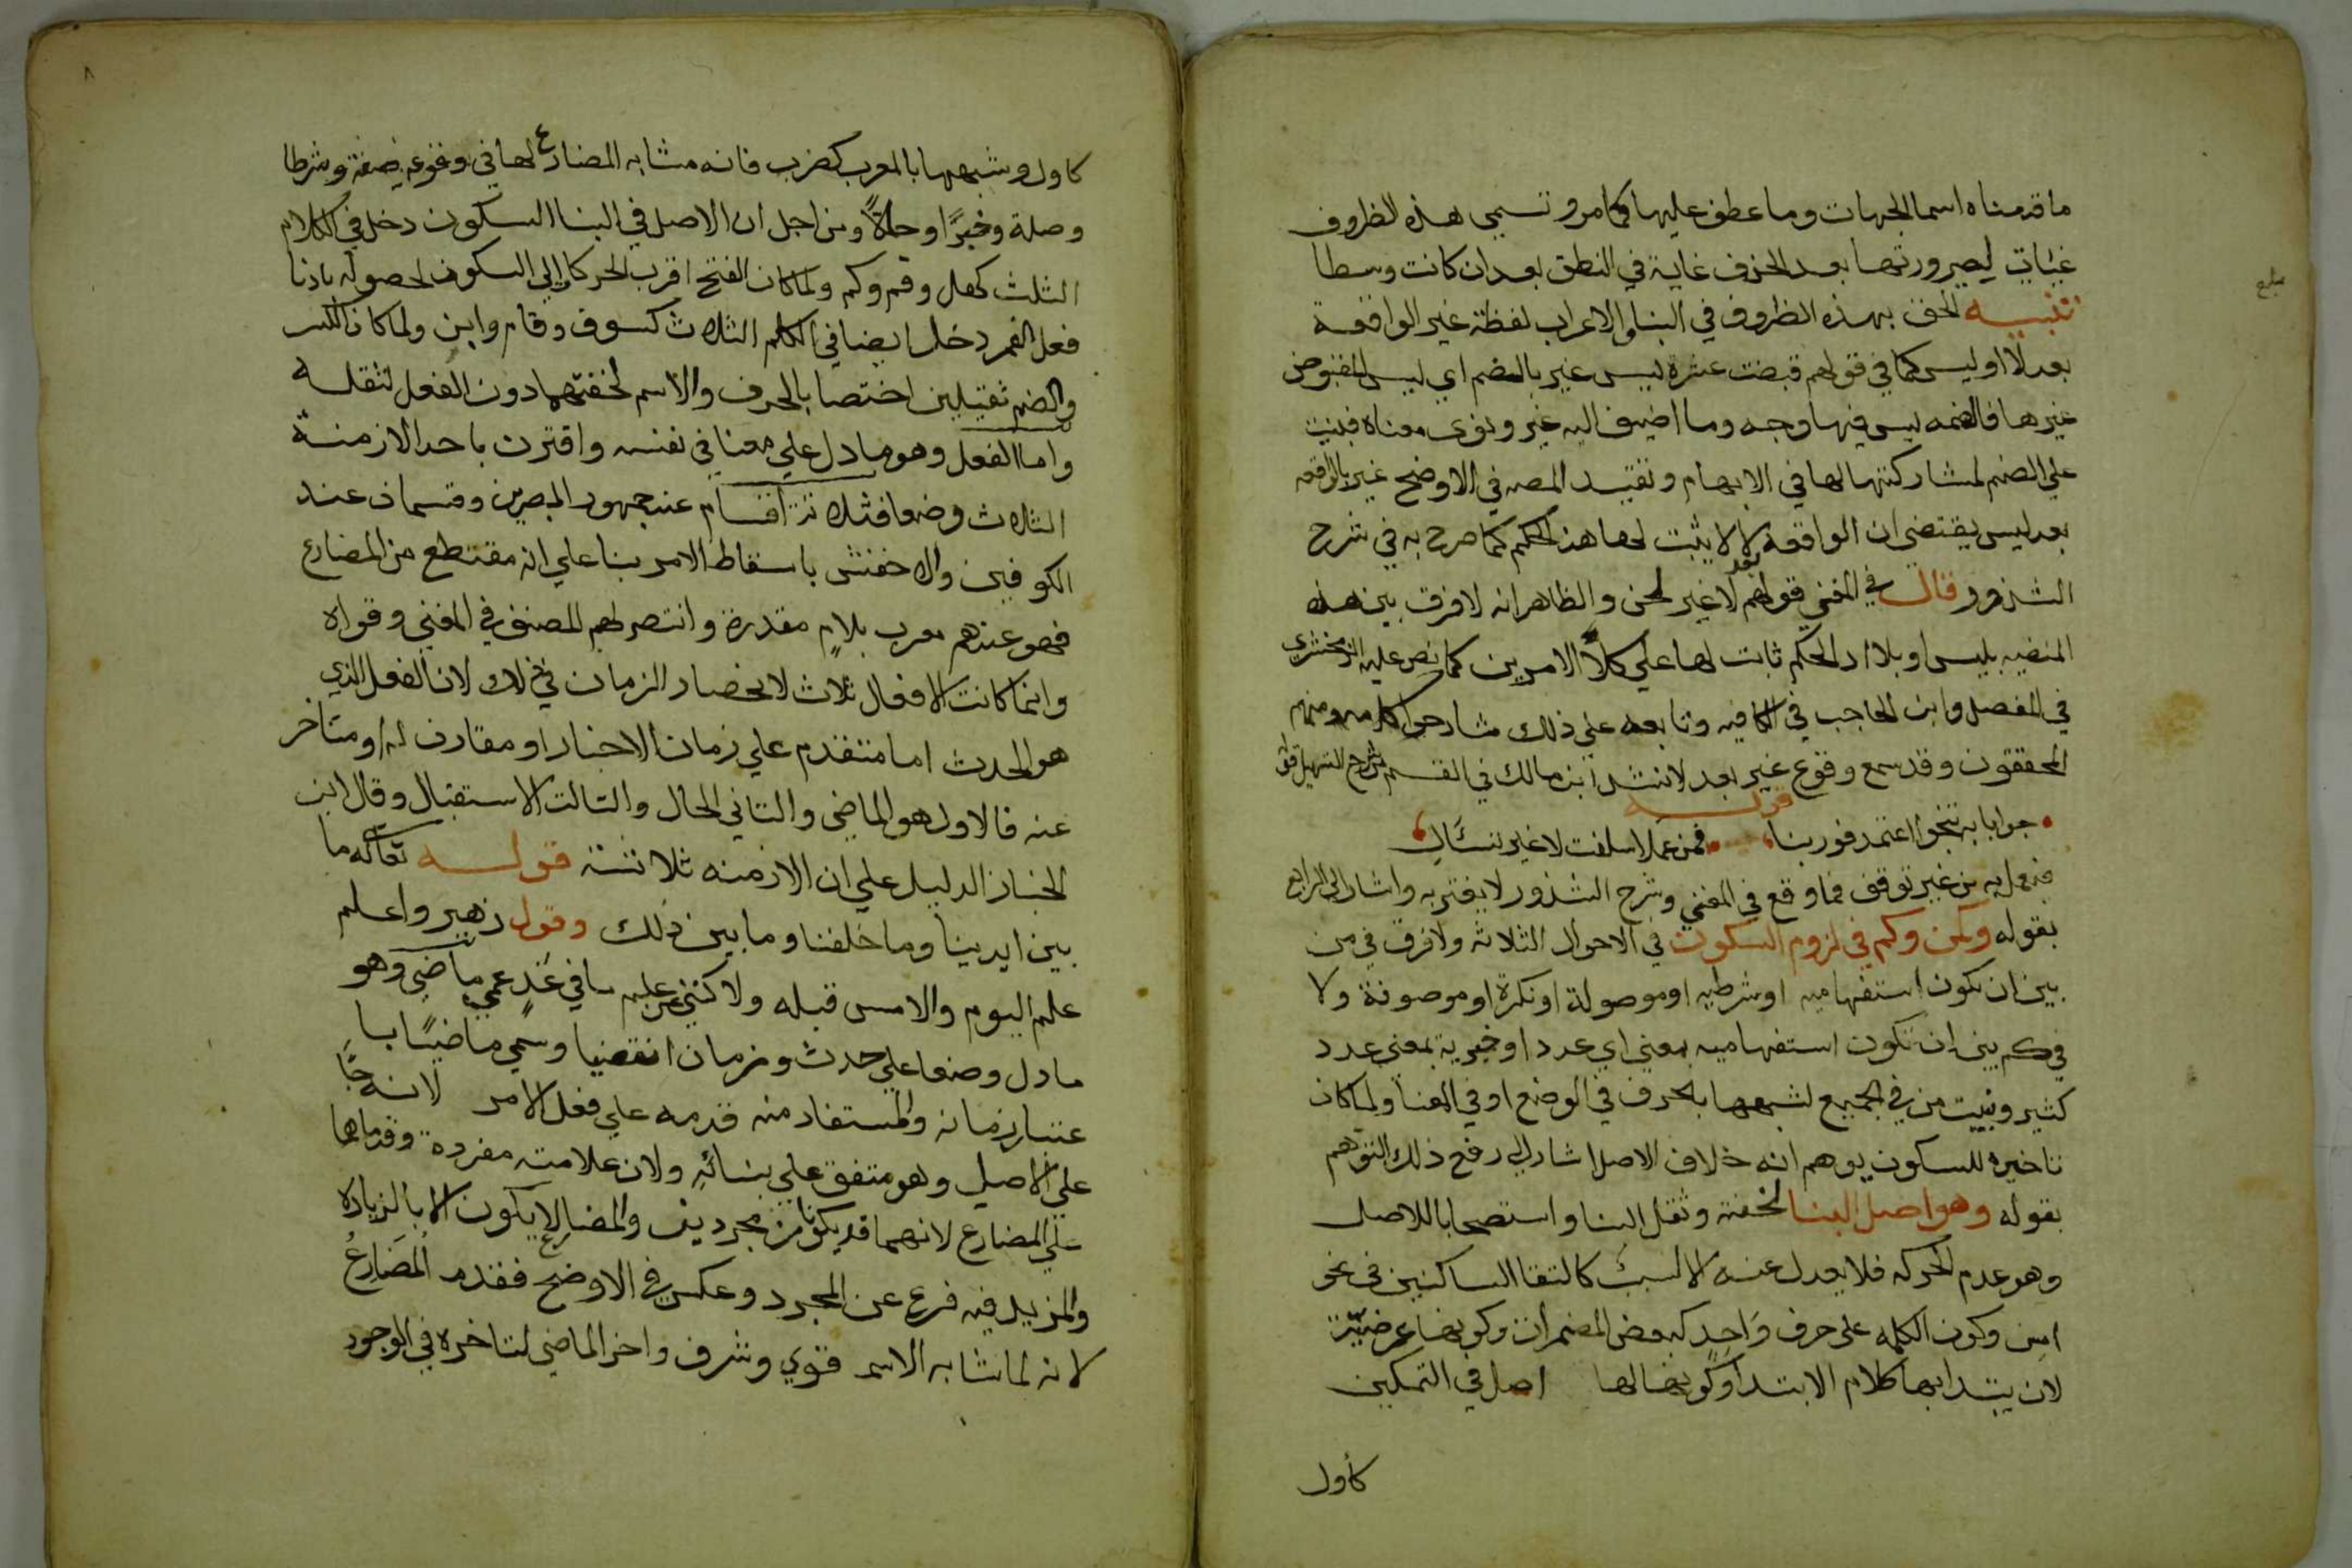 ما قدمناه اسما الجهات وما عطف عليها كما مر وتسمي هذه الظروف
غايات ليصيرورتها بعد الحذف غاية في النطق بعد ان كانت وسطا
تنبيه الحق بهذه الظروف في البنا والاعراب لفظة غير الواقعة
بعد لا او ليس كما في قولهم قبضت عشرة ليس غير بالضم اي ليس المقبوض
غيرها فالضمه ليس فيها وجه وما اضيف اليه غير ونوي معناه فبنيت
علي الضم لمشاركتها لها في الابهام وتقييد المصه في الاوضح غير بالواقعه
بعد ليس يقتضي ان الواقعة بعد لا لا يثبت لها هذا الحكم كما صرح به في شرح
الشذور وقال في المغني قولهم لا غير لحن والظاهر انه لا فرق بين هذه
المنفيه بليس او بلا اذ الحكم ثابت لها علي كلا الامرين كما نص عليه الزمخشري
في المفصل وابن الحاجب في الكافيه وتابعه علي ذلك شارحوا كلامه ومنهم
المحققون وقد سمع وقوع غير بعد لا انشد ابن مالك في القسم من شرح التسهيل قوله
قوله
جوابا به تنجوا اعتمد فوربنا فمن عمل اسلفت لا غير تسئال
من غير توقف فما وقع في المغني وشرح الشذور لا يغتر به واشار الي الرابع
بقوله وكمن وكم في لزوم السكون في الاحوال الثلاثه ولا فرق في من
بين ان تكون استفهاميه او شرطيه او موصولة او نكرة او موصوفة ولا
في كم بين ان تكون استفهاميه بمعني اي عدد او خبرية بمعني عدد
كثير وبنيت من في الجميع لشبهها بالحرف في الوضع او في المعنا ولما كان
تاخيره للسكون يوهم انه خلاف الاصل اشار الي دفع ذلك التوهم
بقوله وهو اصل البنا لخفته وثقل البنا واستصحابا للاصل
وهو عدم الحركه فلا يعدل عنه الا لسبب كالتقا الساكنين في نحو
امس وكون الكلمه علي حرف واحد كبعض المضمرات وكونها عرضيّة
لان يبتدا بها كلام الابتدا وكونها لها اصل في التمكين
كأول
كاول وشبهها بالمعرب كضرب فانه مشابه المضارع لها في وقوعه صفة وشرطا
وصلة وخبرًا وحالاً ومن اجل ان الاصل في البنا السكون دخل في الكلام
الثلث كهل وقم وكم ولما كان الفتح اقرب الحركات الي السكون لحصوله بادنا
فعل الفم دخل ايضا في الكلم الثلاث كسوف وقام واين ولما كان الكسر
والضم ثقيلين اختصا بالحرف والاسم لخفتهما دون الفعل لثقله
واما الفعل وهو ما دل علي معنا في نفسه واقترن باحد الازمنة
الثلاث وضعا فثلاثة اقسام عند جمهور البصرين وقسمان عند
الكوفيين والاخفش باسقاط الامر بنا علي انه مقتطع من المضارع
فهو عندهم معرب بلام مقدرة وانتصر لهم المصنف في المغني وقواه
وانما كانت الافعال ثلاث لانحصار الزمان في ذلك لان الفعل الذي
هو الحدث اما متقدم علي زمان الاخبار او مقارن له او متاخر
عنه فالاول هو الماضي والثاني الحال والثالث الاستقبال وقال ابن
الخباز الدليل علي ان الازمنه ثلاثة قوله تعالي له ما
بين ايدينا وما خلفنا وما بين ذلك وقول زهير واعلم
علم اليوم والامس قبله ولاكنني عن علم ما في غد عمي ماضي وهو
ما دل وضعا علي حدث وزمان انقضيا وسمي ماضيًا با
عتبار زمانه والمستفاد منه قدمه علي فعل الامر لانه جا
علي الاصل وهو متفق علي بنائه ولان علامته مفردة وقدماهما
علي المضارع لانهما قد يكونا من مجردين والمضارع لا يكون الا بالزيادة
والمزيد فيه فرع عن المجرد وعكس في الاوضح فقدم المضارع
لانه لما شابه الاسم قوي وشرف واخر الماضي لتاخره في الوجود